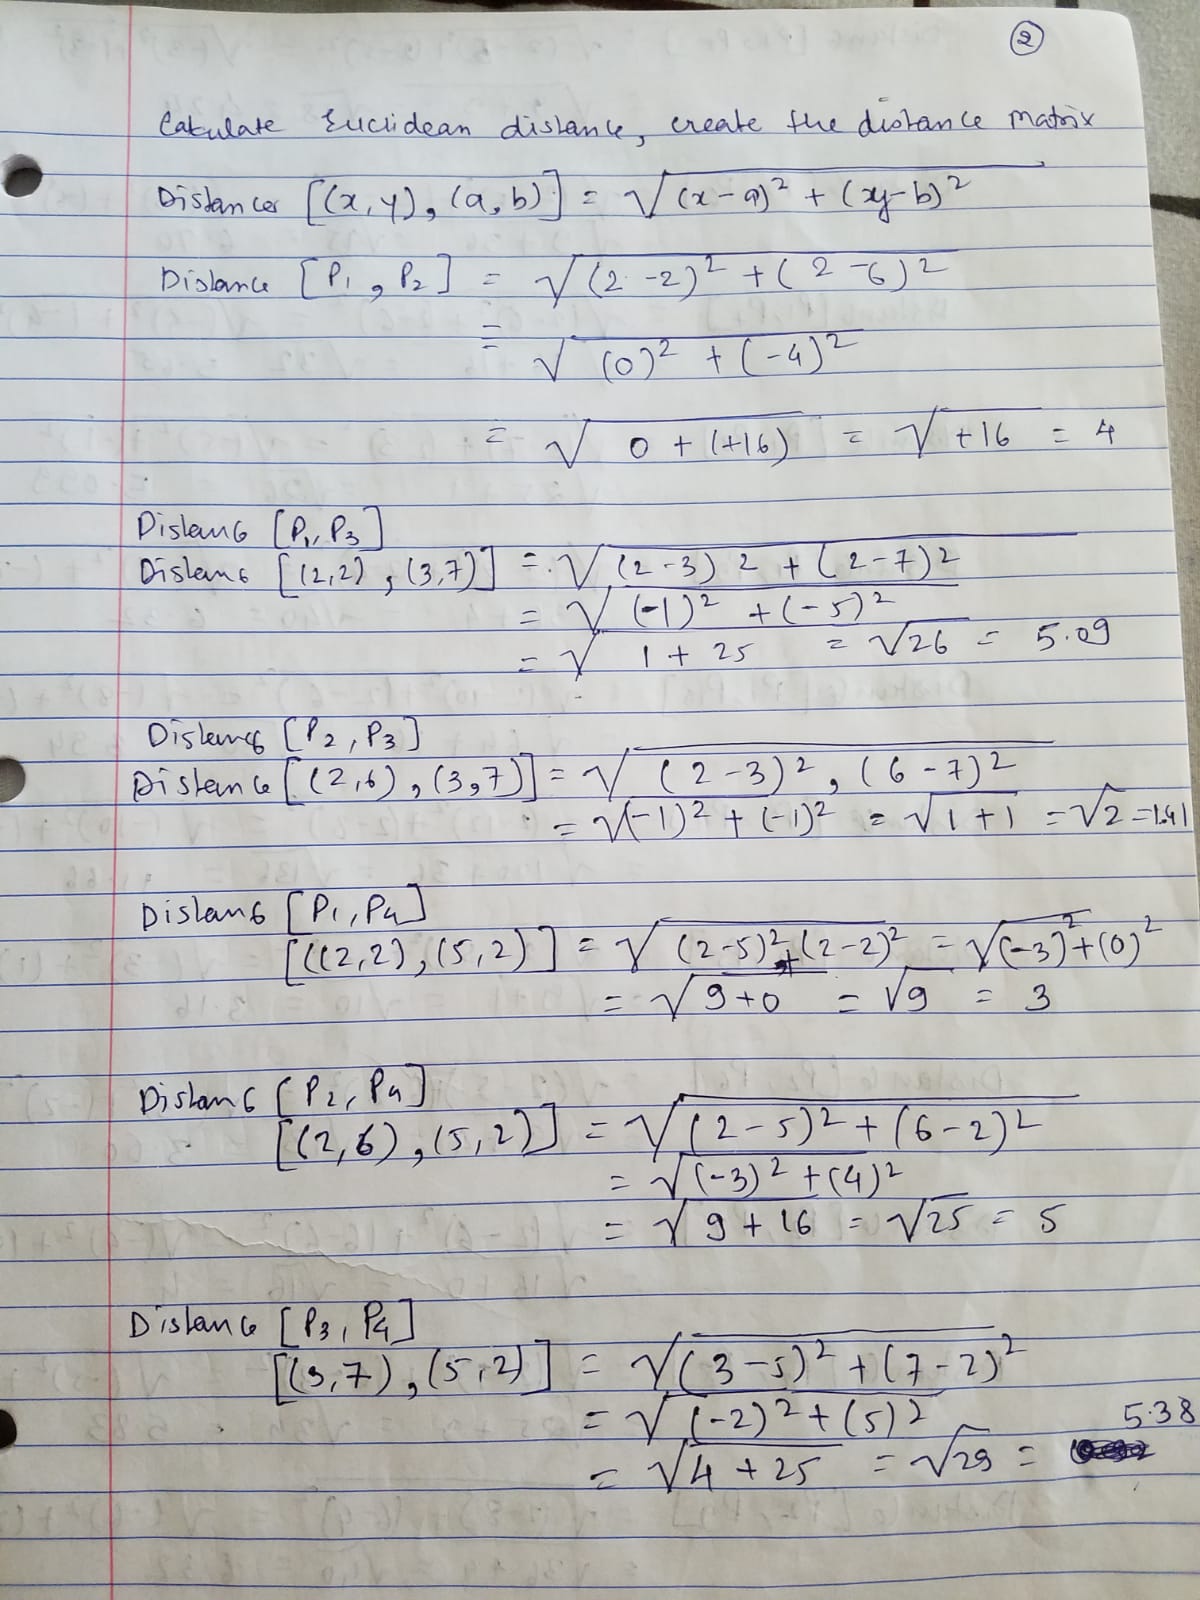 2
Calculate Euclidean distance, create the distance matrix
Distances [(x,y), (a,b)] = √(x-a)² + (y-b)²
Distance [P1, P2] = √(2-2)² + (2-6)²
= √(0)² + (-4)²
= √0 + (+16) = √+16 = 4
Distance [P1, P3]
Distance [(2,2), (3,7)] = √(2-3)2 + (2-7)2
= √(-1)² + (-5)²
= √1 + 25 = √26 = 5.09
Distance [P2, P3]
Distance [(2,6), (3,7)] = √(2-3)², (6-7)²
= √(-1)² + (-1)² = √1+1 = √2 = 1.41
Distance [P1, P4]
[((2,2), (5,2)] = √(2-5)² + (2-2)² = √(-3)² + (0)²
= √9+0 = √9 = 3
Distance [P2, P4]
[(2,6), (5,2)] = √(2-5)² + (6-2)²
= √(-3)² + (4)²
= √9 + 16 = √25 = 5
Distance [P3, P4]
[(3,7), (5,2)] = √(3-5)² + (7-2)²
= √(-2)² + (5)²
= √4 + 25 = √29 = 5.38